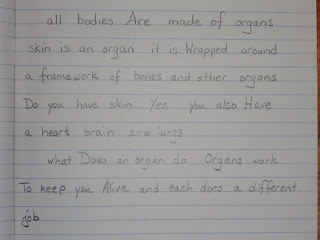 all bodies Are made of organs
skin is an organ it is Wrapped around
a framework of bones and other organs
Do you have skin Yes You also Have
a heart brain and lungs
what Does an organ do Organs work
To keep you Alive and each does a different
job